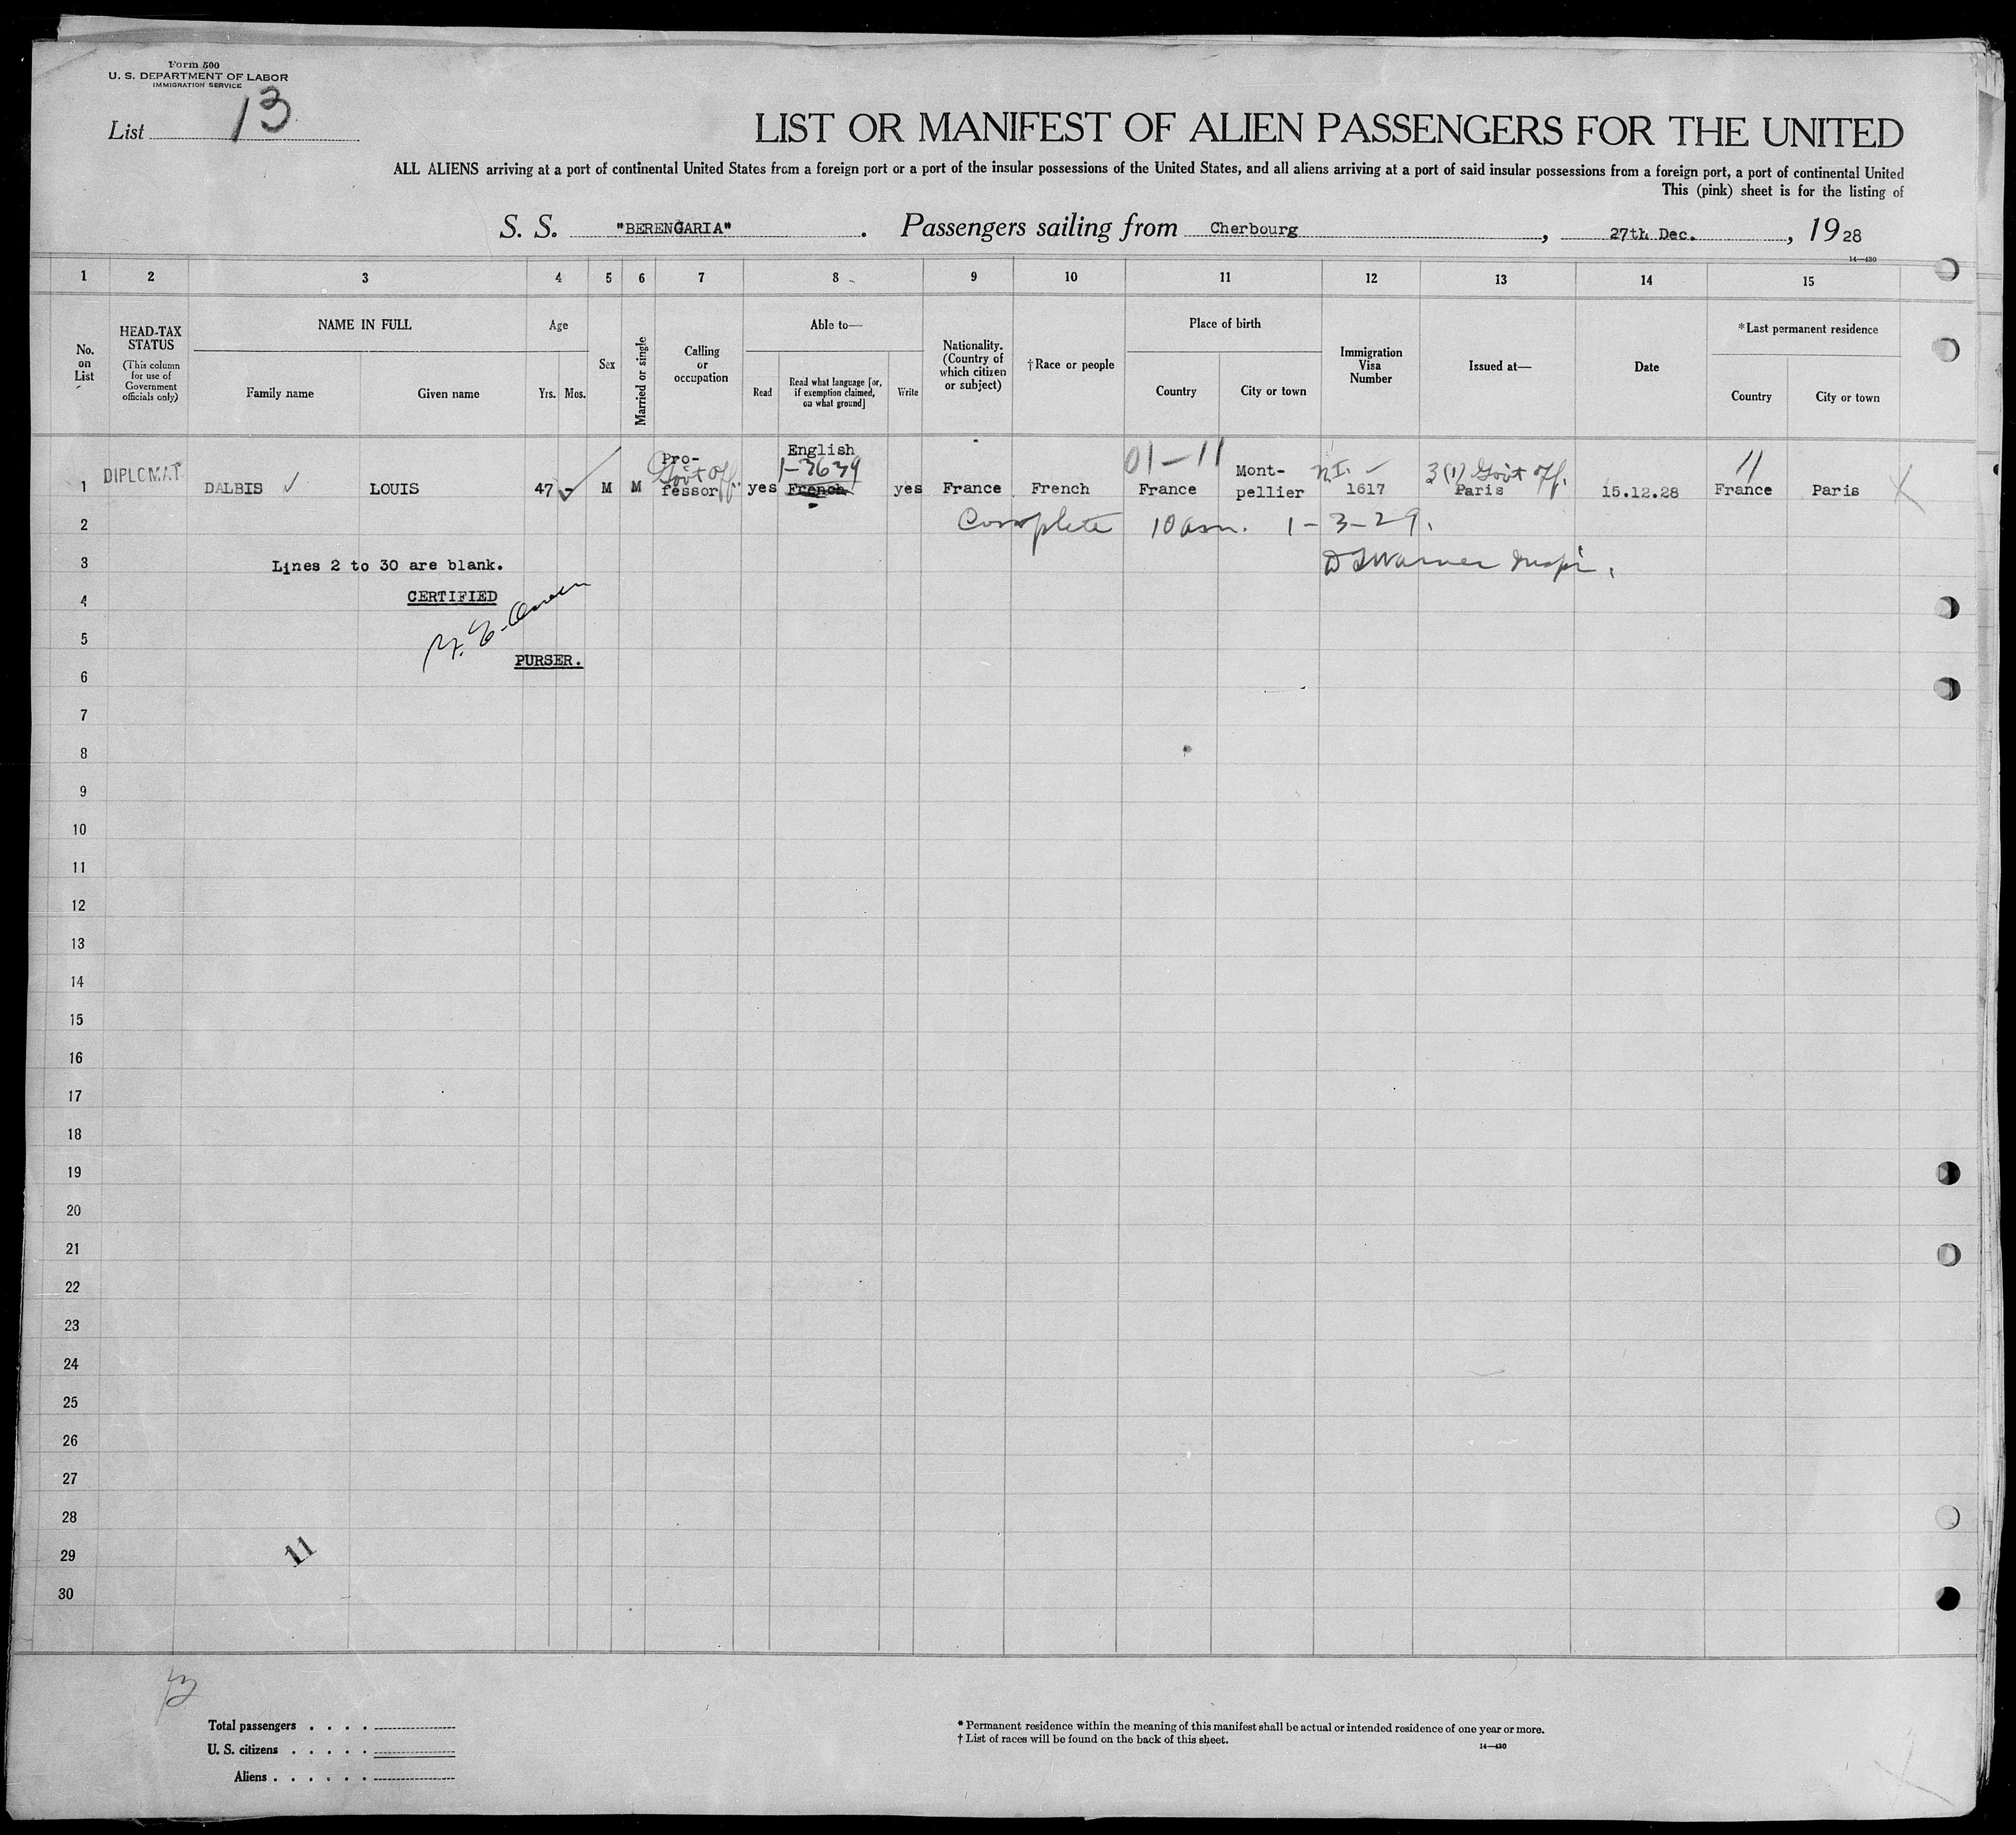 Form 500
U. S. DEPARTMENT OF LABOR
IMMIGRATION SERVICE
List 13
LIST OR MANIFEST OF ALIEN PASSENGERS FOR THE UNITED
ALL ALIENS arriving at a port of continental United States from a foreign port or a port of the insular possessions of the United States, and all aliens arriving at a port of said insular possessions from a foreign port, a port of continental United
This (pink) sheet is for the listing of
S. S. "BERENGARIA". Passengers sailing from Cherbourg, 27th Dec., 1928
14—430
1 2 3 4 5 6 7 8 9 10 11 12 13 14 15
No. on List
HEAD-TAX STATUS
(This column for use of Government officials only)
NAME IN FULL
Family name
Given name
Age
Yrs. Mos.
Sex
Married or single
Calling or occupation
Able to—
Read
Read what language [or, if exemption claimed, on what ground]
Write
Nationality. (Country of which citizen or subject)
†Race or people
Place of birth
Country
City or town
Immigration Visa Number
Issued at—
Date
*Last permanent residence
Country
City or town
English
Pro- Gov't Off. 1-3639 01-11 Mont- N.I. - 3(1) Gov't Off. 11
1 DIPLOMAT DALBIS ✓ LOUIS 47 - M M fessor yes French yes France French France pellier 1617 Paris 15.12.28 France Paris X
2 Complete 10 am. 1-3-29.
3 Lines 2 to 30 are blank. Warner Inspr.
4 CERTIFIED
5
PURSER.
6
7
8
9
10
11
12
13
14
15
16
17
18
19
20
21
22
23
24
25
26
27
28
29 11
30
Total passengers . . . .
U. S. citizens . . . . .
Aliens . . . . . .
* Permanent residence within the meaning of this manifest shall be actual or intended residence of one year or more.
† List of races will be found on the back of this sheet.
14—430